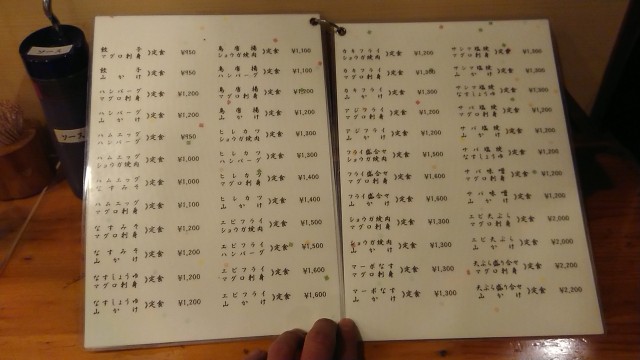 ソース
餃子
マグロ刺身 》定食 ¥950
餃子
山かけ 》定食 ¥950
ハンバーグ
マグロ刺身 》定食 ¥1,200
ハンバーグ
山かけ 》定食 ¥1,200
ハムエッグ
マグロ刺身 》定食 ¥950
ハムエッグ
ショウガ焼肉 》定食 ¥1,000
ハムエッグ
なすみそ 》定食 ¥1,000
ハムエッグ
マグロ刺身 》定食 ¥1,100
なすみそ
マグロ刺身 》定食 ¥1,200
なすみそ
山かけ 》定食 ¥1,200
なすしょうゆ
マグロ刺身 》定食 ¥1,200
なすしょうゆ
山かけ 》定食 ¥1,200
鳥唐揚
ショウガ焼肉 》定食 ¥1,100
鳥唐揚
ハンバーグ 》定食 ¥1,100
鳥唐揚
マグロ刺身 》定食 ¥1,200
鳥唐揚
山かけ 》定食 ¥1,200
ヒレカツ
ショウガ焼肉 》定食 ¥1,300
ヒレカツ
ハンバーグ 》定食 ¥1,300
ヒレカツ
マグロ刺身 》定食 ¥1,400
ヒレカツ
山かけ 》定食 ¥1,400
エビフライ
ショウガ焼肉 》定食 ¥1,500
エビフライ
ハンバーグ 》定食 ¥1,500
エビフライ
マグロ刺身 》定食 ¥1,600
エビフライ
山かけ 》定食 ¥1,600
カキフライ
ショウガ焼肉 》定食 ¥1,200
カキフライ
マグロ刺身 》定食
カキフライ
山かけ 》定食 ¥1,300
アジフライ
マグロ刺身 》定食 ¥1,200
アジフライ
山かけ 》定食 ¥1,200
フライ盛合せ
ショウガ焼肉 》定食 ¥1,500
フライ盛合せ
マグロ刺身 》定食 ¥1,600
フライ盛合せ
山かけ 》定食 ¥1,600
ショウガ焼肉
マグロ刺身 》定食 ¥1,300
ショウガ焼肉
山かけ 》定食 ¥1,300
マーボなす
マグロ刺身 》定食 ¥1,300
マーボなす
山かけ 》定食 ¥1,300
サンマ塩焼
マグロ刺身 》定食 ¥1,300
サンマ塩焼
山かけ 》定食 ¥1,300
サンマ塩焼
なすしょうゆ 》定食 ¥1,200
サバ塩焼
マグロ刺身 》定食 ¥1,200
サバ塩焼
山かけ 》定食 ¥1,200
サバ塩焼
なすしょうゆ 》定食 ¥1,100
サバ味噌
マグロ刺身 》定食 ¥1,200
サバ味噌
山かけ 》定食 ¥1,200
エビ天ぷら
マグロ刺身 》定食 ¥2,000
エビ天ぷら
山かけ 》定食 ¥2,000
天ぷら盛り合せ
マグロ刺身 》定食 ¥2,200
天ぷら盛り合せ
山かけ 》定食 ¥2,200